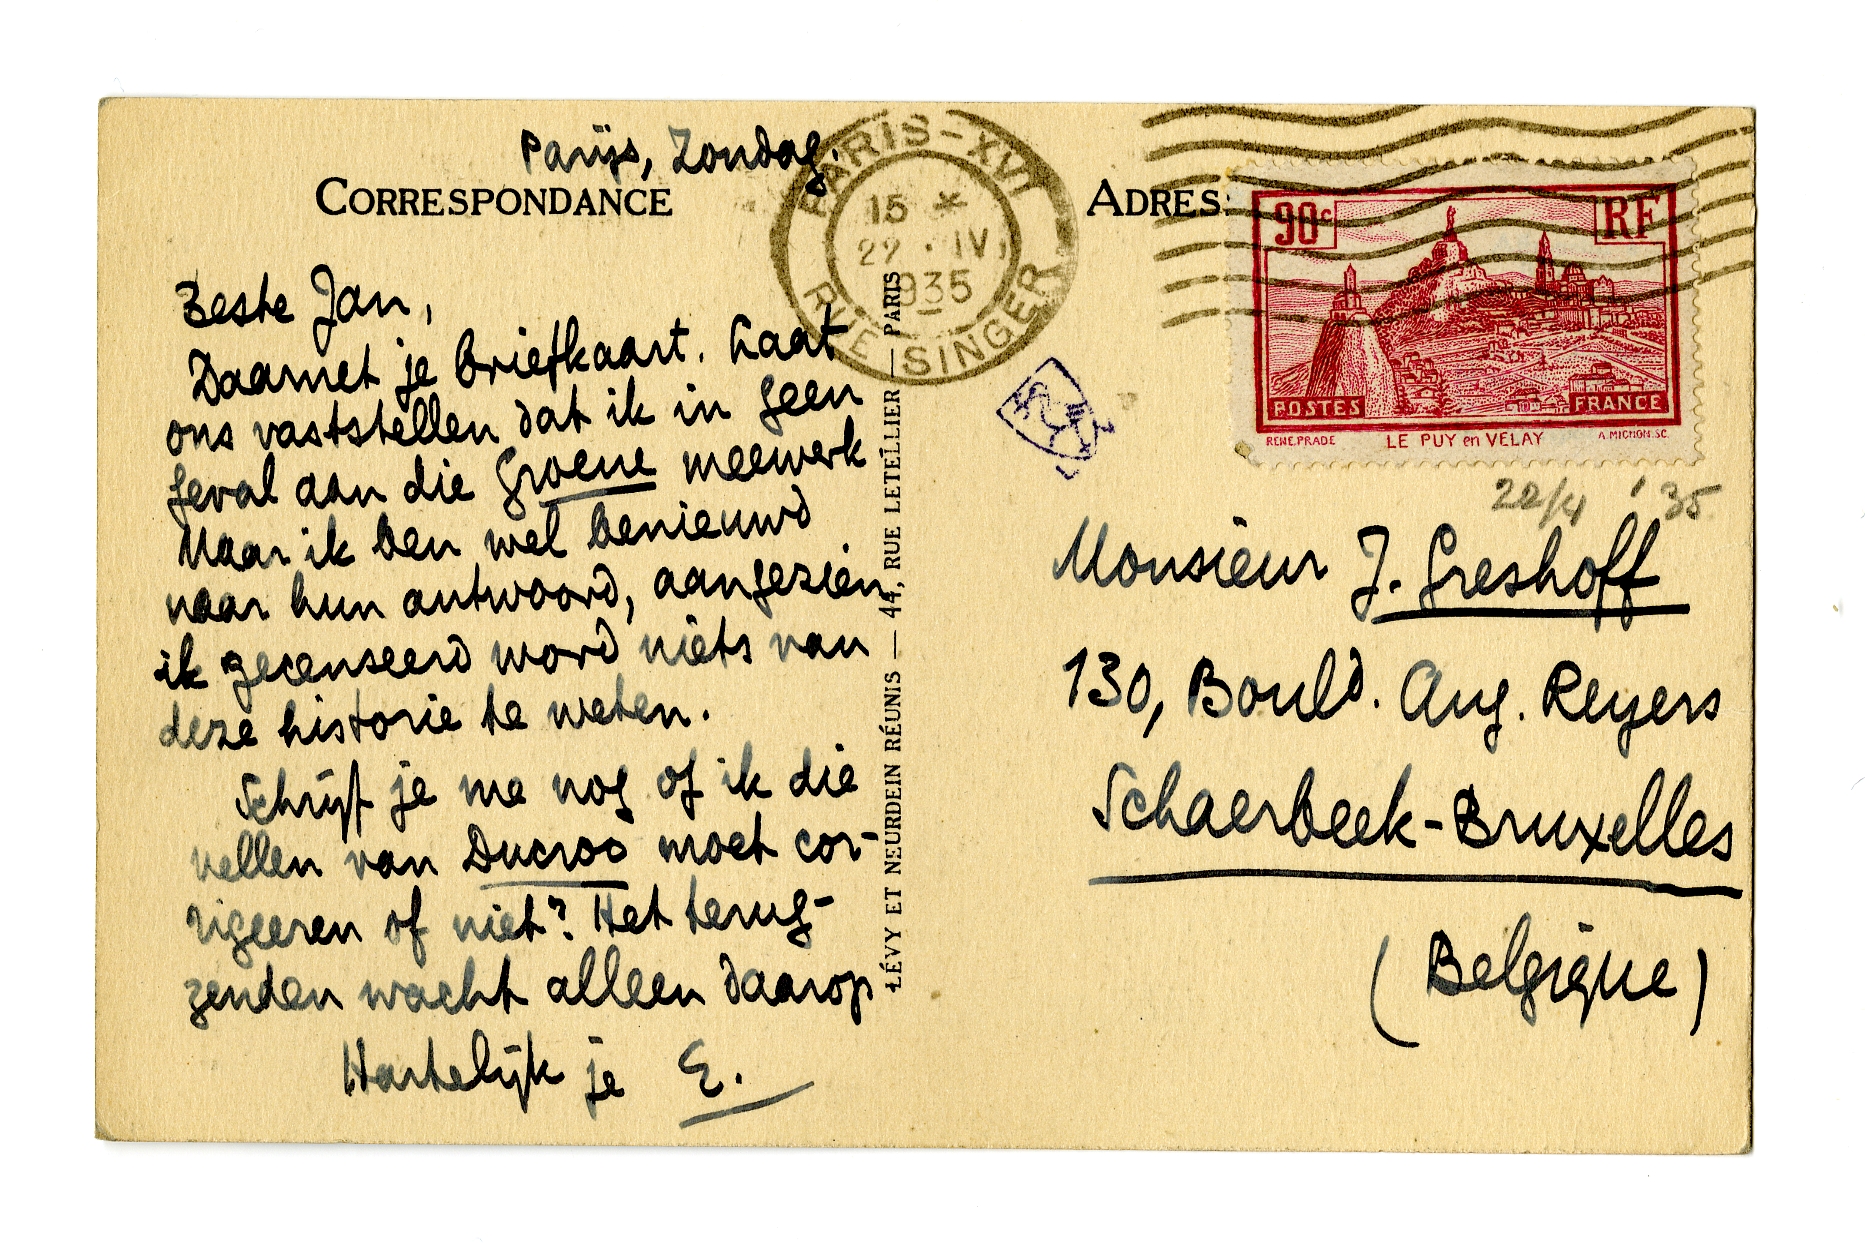 Parijs, Zondag.
CORRESPONDANCE
Beste Jan,
Daarnet je briefkaart. Laat
ons vaststellen dat ik in geen
geval aan die Groene meewerk
Maar ik ben wel benieuwd
naar hun antwoord, aangezien
ik gecenseerd word niets van
deze historie te weten.
Schrijf je me nog of ik die
vellen van Ducroo moet cor-
rigeeren of niet? Het terug-
zenden wacht alleen daarop
Hartelijk je E.
LÉVY ET NEURDEIN RÉUNIS — 44, RUE LETELLIER — PARIS
PARIS-XVI
15 *
22 · IV
1935
RUE SINGER
ADRES
90c
RF
POSTES
FRANCE
RENE.PRADE
LE PUY en VELAY
A.MIGNON.SC.
22/4 '35
Monsieur J. Greshoff
130, Bould. Aug. Reyers
Schaerbeek-Bruxelles
(Belgique)